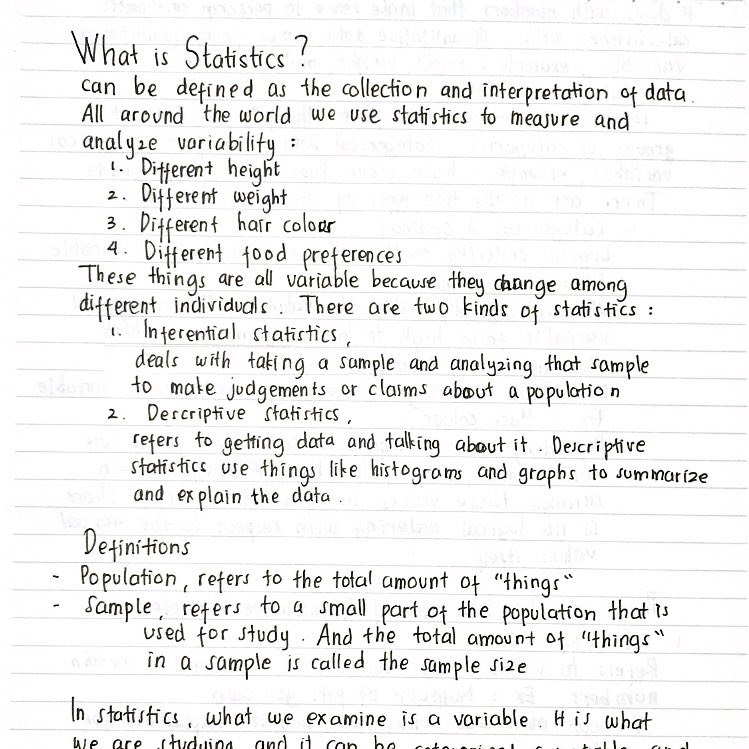 What is Statistics?
can be defined as the collection and interpretation of data.
All around the world we use statistics to measure and
analyze variability :
1. Different height
2. Different weight
3. Different hair colour
4. Different food preferences
These things are all variable because they change among
different individuals. There are two kinds of statistics :
1. Inferential statistics,
deals with taking a sample and analyzing that sample
to make judgements or claims about a population
2. Descriptive statistics,
refers to getting data and talking about it. Descriptive
statistics use things like histograms and graphs to summarize
and explain the data.
Definitions
- Population, refers to the total amount of "things"
- Sample, refers to a small part of the population that is
used for study. And the total amount of "things"
in a sample is called the sample size
In statistics, what we examine is a variable. It is what
we are studying and it can be